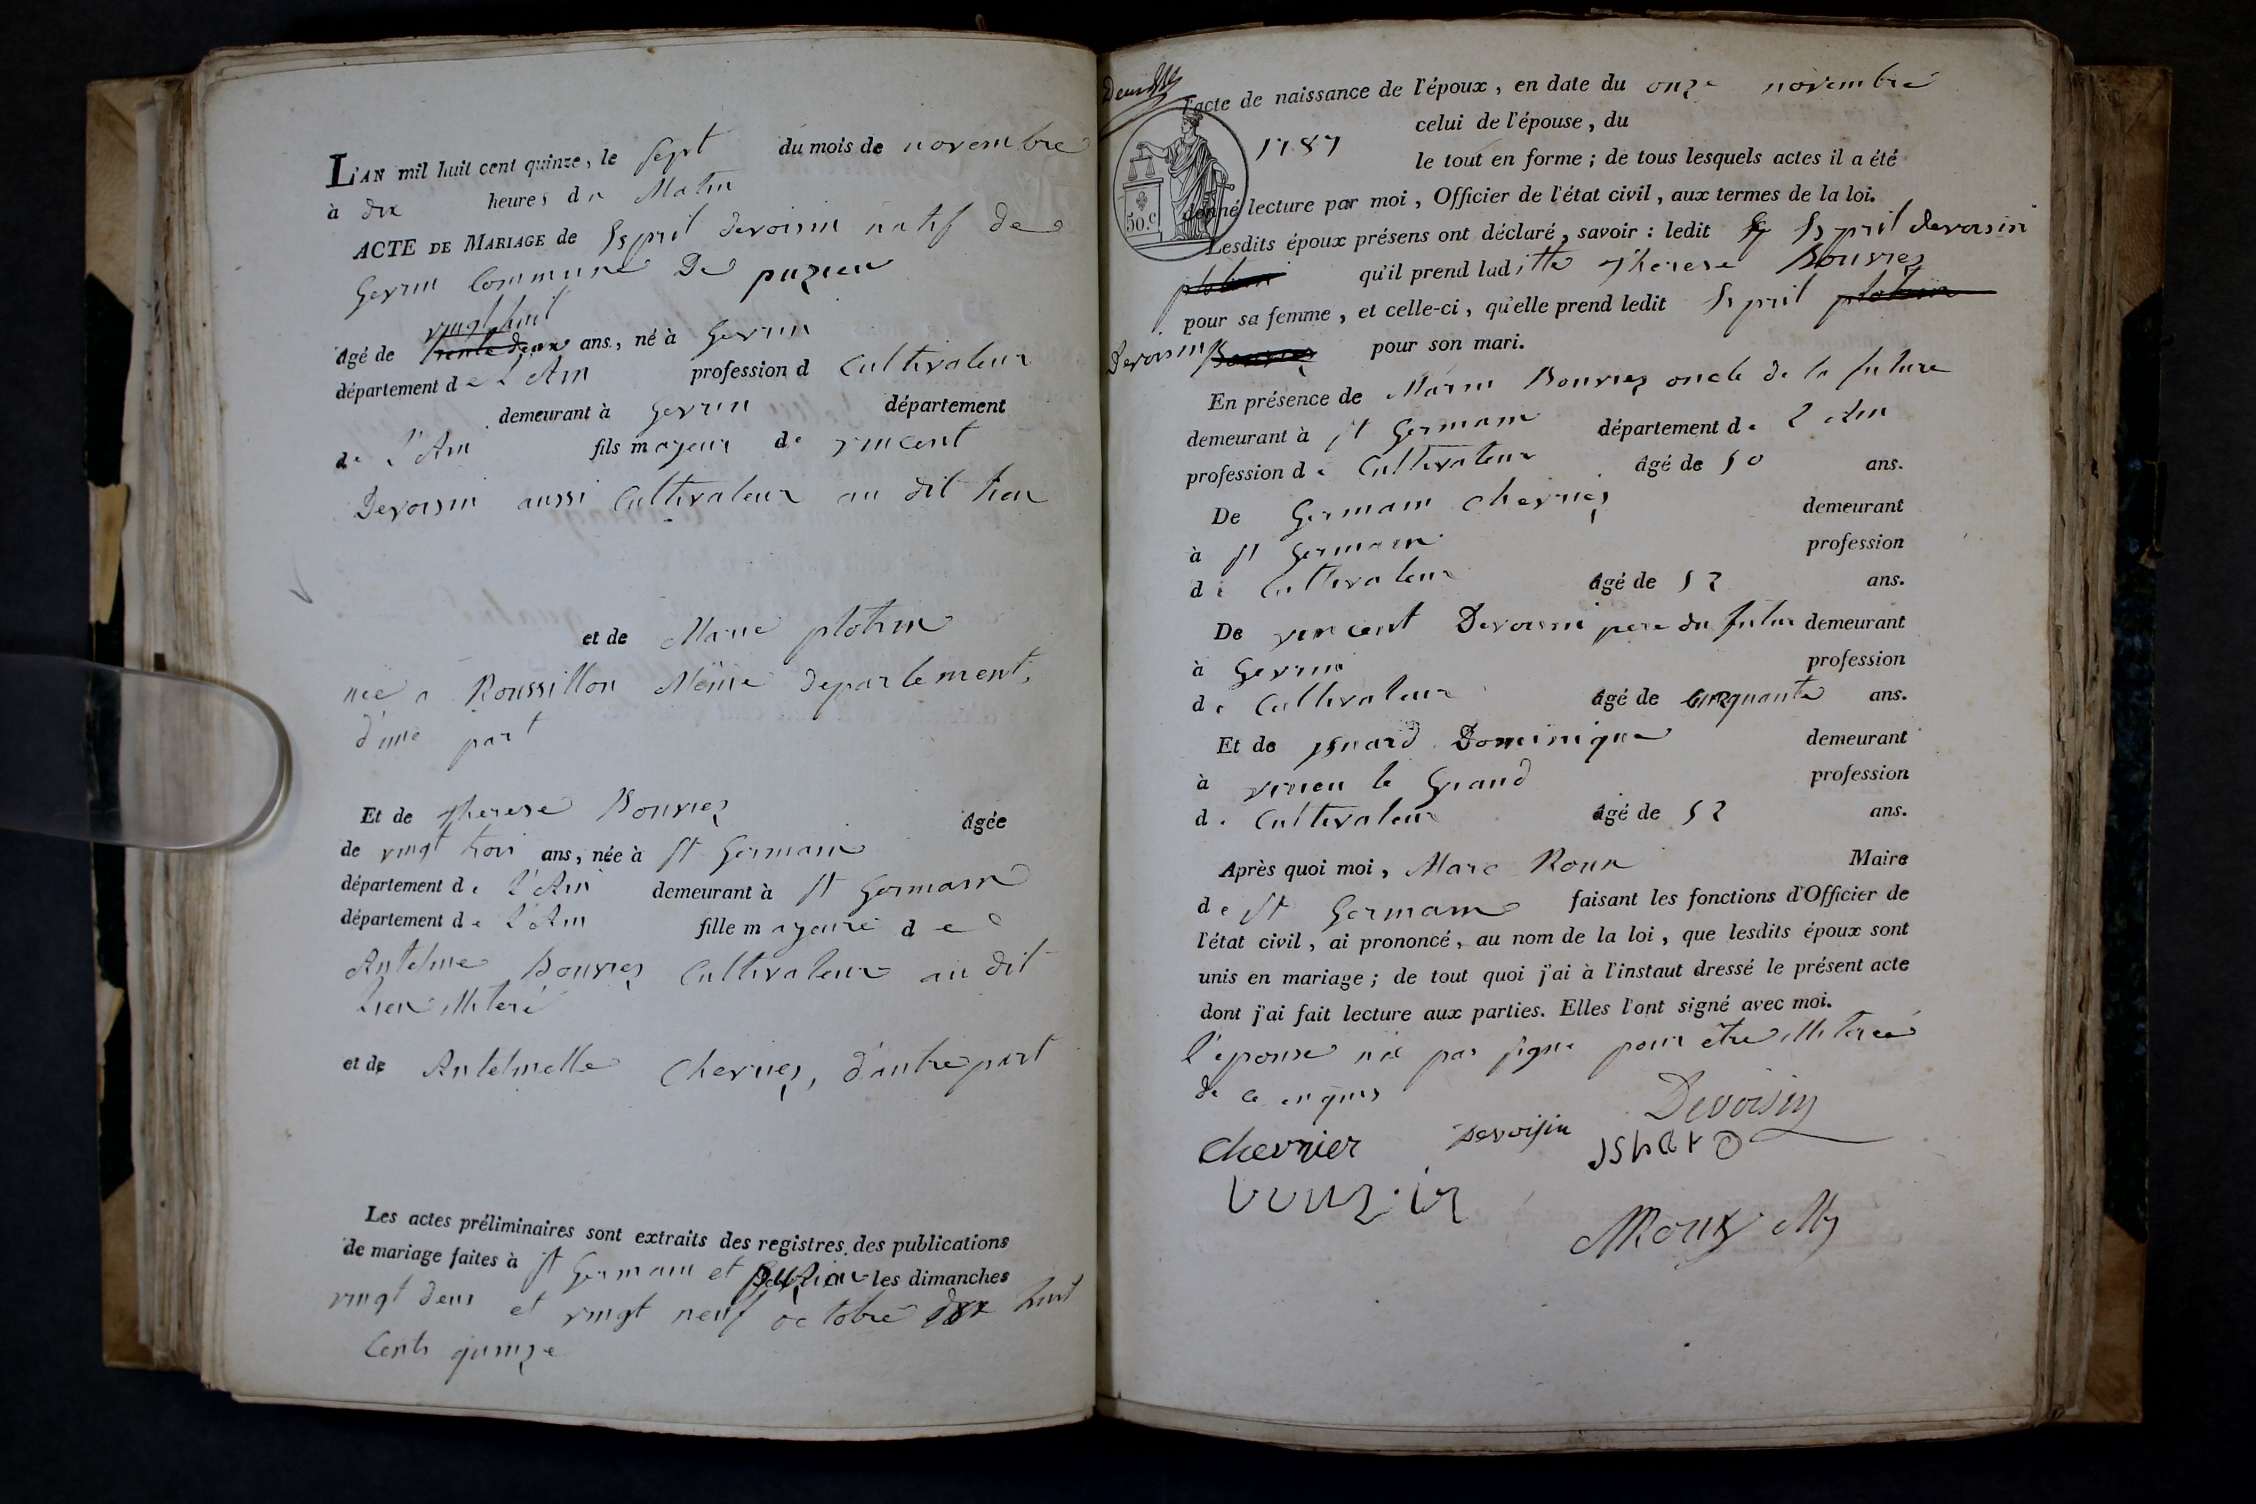 L'AN mil huit cent quinze, le sept du mois de novembre
à dix heures du Matin
ACTE DE MARIAGE de Esprit devoisin natif de
Gevrin Commune De puzieu
vingt huit
âgé de trente deux ans, né à Gevrin
département de l'Ain profession d Cultivateur
demeurant à Gevrin département
de l'Ain fils majeur de vincent
Devoisin aussi Cultivateur au dit lieu
et de Marie plotin
née a Roussillon Même departement,
d'une part
Et de therese Bouvier âgée
de vingt trois ans, née à St Germain
département de l'Ain demeurant à St Germain
département de l'Ain fille majeure de
Antelme Bouvier Cultivateur au dit
lieu illiteré
et de Antelmette Chevrier, d'autre part
Les actes préliminaires sont extraits des registres des publications
de mariage faites à St Germain et puzieu les dimanches
vingt deux et vingt neuf octobre dix huit
Cents quinze
l'acte de naissance de l'époux, en date du onze novembre
1787 celui de l'épouse, du
le tout en forme; de tous lesquels actes il a été
50.c donné lecture par moi, Officier de l'état civil, aux termes de la loi.
Lesdits époux présens ont déclaré, savoir: ledit Esprit devoisin
plotin qu'il prend laditte therese Bouvier
pour sa femme, et celle-ci, qu'elle prend ledit Esprit plotin
Devoisin Bouvier pour son mari.
En présence de Marin Bouvier oncle de la future
demeurant à St Germain département de l'Ain
profession de Cultivateur âgé de 50 ans.
De Germain chevrier demeurant
à St Germain profession
de Cultivateur âgé de 52 ans.
De vincent Devoisin pere du futur demeurant
à Gevrin profession
de Cultivateur âgé de cinquante ans.
Et de ysnard Dominique demeurant
à virieu le Grand profession
de Cultivateur âgé de 52 ans.
Après quoi moi, Marc Roux Maire
de St Germain faisant les fonctions d'Officier de
l'état civil, ai prononcé, au nom de la loi, que lesdits époux sont
unis en mariage; de tout quoi j'ai à l'instaut dressé le présent acte
dont j'ai fait lecture aux parties. Elles l'ont signé avec moi.
l'epouse n'a pas signé pour être illiterée
de ce enquis
Devoisin
chevrier Devoisin
MRoux